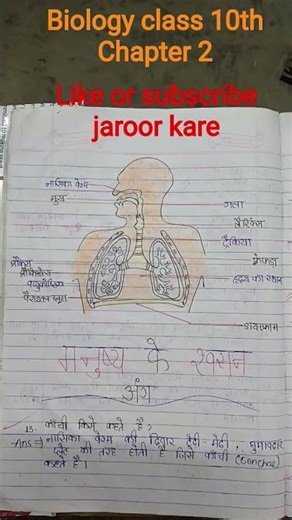 Biology class 10th
Chapter 2
Like or subscribe
jaroor kare
नासिका वेश्म
मुख
गला
लैरिंक्स
ट्रैकिया
फेफड़ा
हृदय का स्थान
ब्रोंकस
वायुकोष्ठिका
डायफ्राम
मनुष्य के श्वसन
अंग
13. कौंची किसे कहते है?
Ans ⇒ नासिका वेश्म की दिवार टेढ़ी-मेढ़ी, घुमावदार
प्लेट की तरह होती है जिसे कौंची (Conchae)
कहते है।